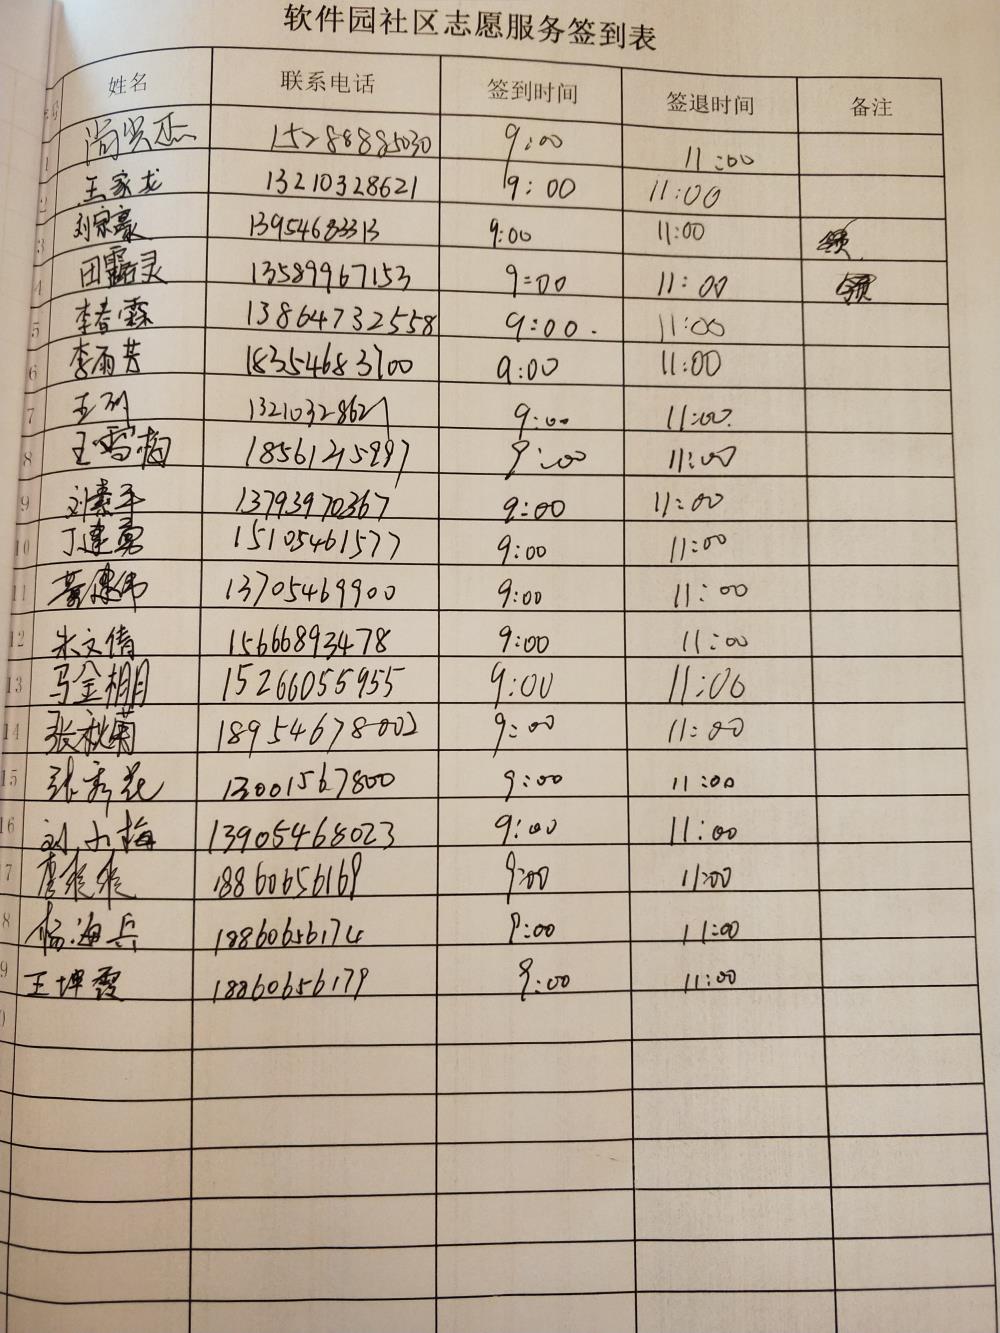 软件园社区志愿服务签到表
姓名 联系电话 签到时间 签退时间 备注
1 尚兴杰 15288885030 9:00 11:00
2 王家龙 13210328621 9:00 11:00
3 刘宗豪 13954683313 9:00 11:00 领
4 田露灵 13589967153 9:00 11:00 领
5 李春霖 13864732558 9:00. 11:00
6 李雨芳 18354683700 9:00 11:00
7 王列 13210328621 9:00 11:00.
8 王雪梅 18561215997 9:00 11:00
9 刘素平 13793970367 9:00 11:00
10 丁建勇 15105461577 9:00 11:00
11 董建伟 13705469900 9:00 11:00
12 朱文倩 15666893478 9:00 11:00
13 马金棚 15266055955 9:00 11:00
14 张秋菊 18954678002 9:00 11:00
15 张秀花 13001567800 9:00 11:00
16 刘小梅 13905468023 9:00 11:00
7 18860656169 9:00 11:00
8 杨海兵 18860656174 9:00 11:00
9 王坤霞 18860656179 9:00 11:00